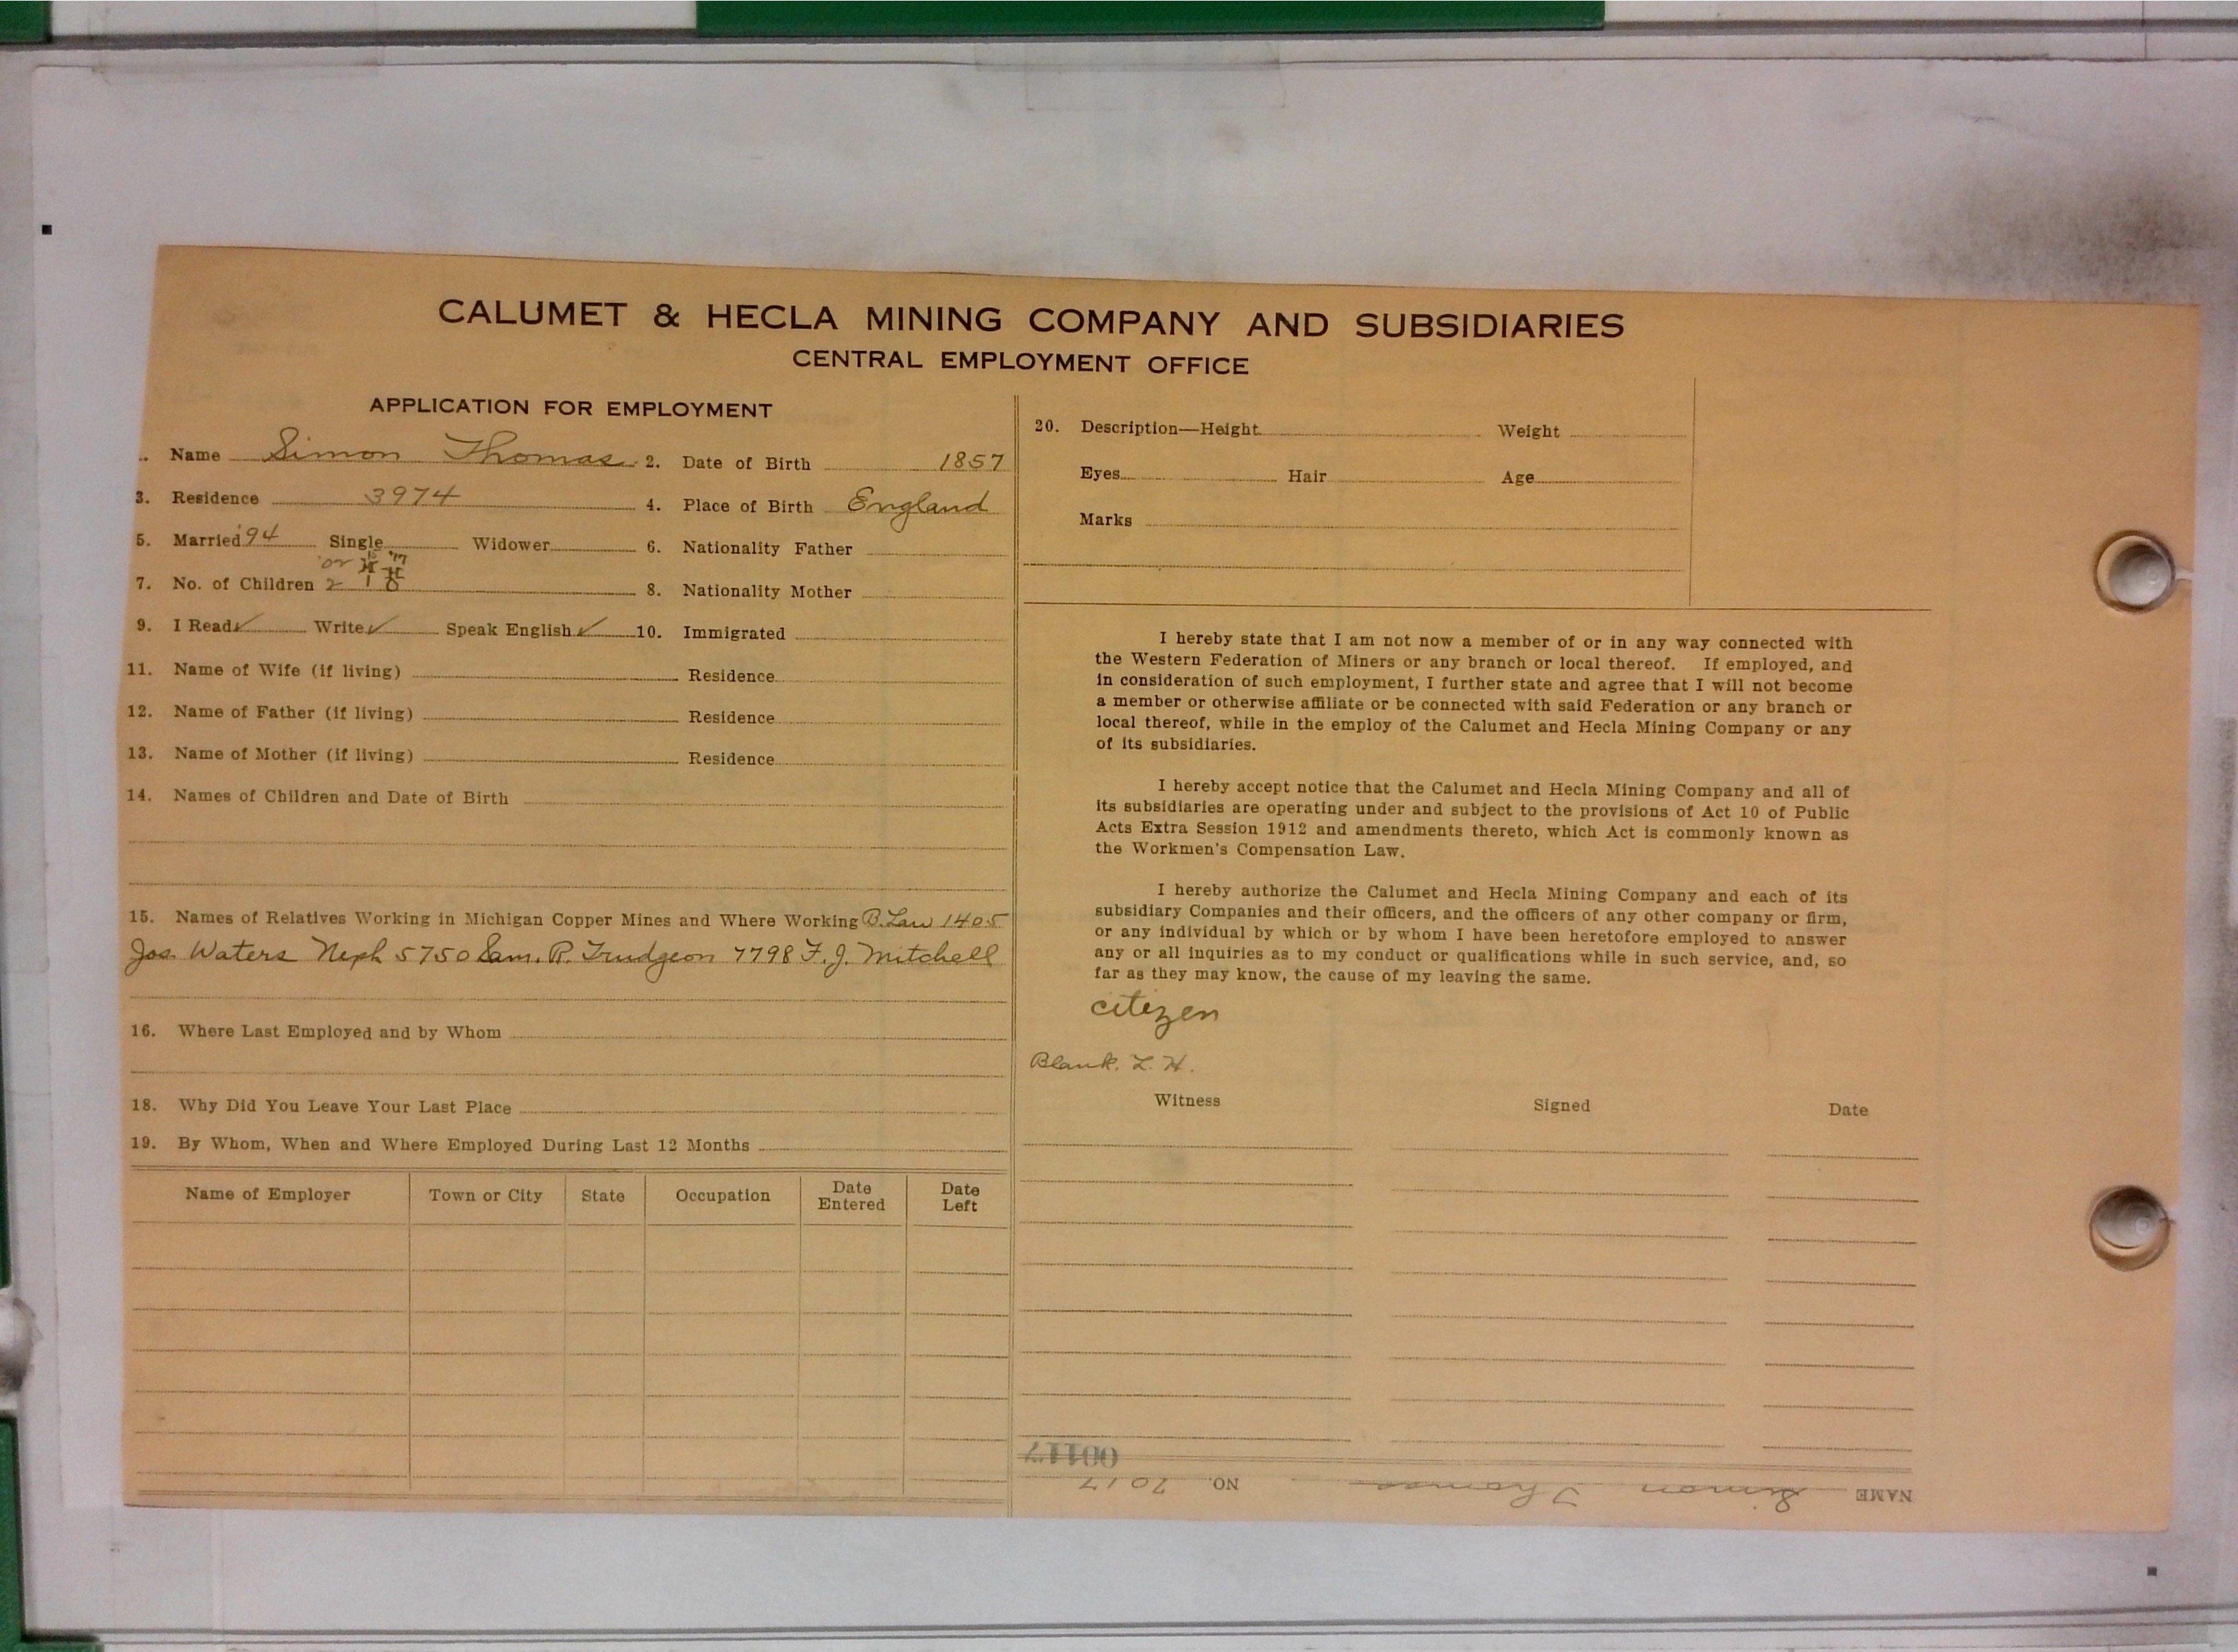 CALUMET & HECLA MINING COMPANY AND SUBSIDIARIES
CENTRAL EMPLOYMENT OFFICE
APPLICATION FOR EMPLOYMENT
Name Simon Thomas 2. Date of Birth 1857
3. Residence 3974 4. Place of Birth England
5. Married '94 Single Widower 6. Nationality Father
7. No. of Children 2 1 8. Nationality Mother
9. I Read ✓ Write ✓ Speak English ✓ 10. Immigrated
11. Name of Wife (if living) Residence
12. Name of Father (if living) Residence
13. Name of Mother (if living) Residence
14. Names of Children and Date of Birth
15. Names of Relatives Working in Michigan Copper Mines and Where Working B. Law 1405
Jos. Waters Neph 5750 Sam. R. Trudgeon 7798 F. J. Mitchell
16. Where Last Employed and by Whom
18. Why Did You Leave Your Last Place
19. By Whom, When and Where Employed During Last 12 Months
Name of Employer Town or City State Occupation Date Entered Date Left
20. Description—Height Weight
Eyes Hair Age
Marks
I hereby state that I am not now a member of or in any way connected with
the Western Federation of Miners or any branch or local thereof. If employed, and
in consideration of such employment, I further state and agree that I will not become
a member or otherwise affiliate or be connected with said Federation or any branch or
local thereof, while in the employ of the Calumet and Hecla Mining Company or any
of its subsidiaries.
I hereby accept notice that the Calumet and Hecla Mining Company and all of
its subsidiaries are operating under and subject to the provisions of Act 10 of Public
Acts Extra Session 1912 and amendments thereto, which Act is commonly known as
the Workmen's Compensation Law.
I hereby authorize the Calumet and Hecla Mining Company and each of its
subsidiary Companies and their officers, and the officers of any other company or firm,
or any individual by which or by whom I have been heretofore employed to answer
any or all inquiries as to my conduct or qualifications while in such service, and, so
far as they may know, the cause of my leaving the same.
citizen
Blank. L. H.
Witness Signed Date
NAME Simon Thomas NO. 7017
00117